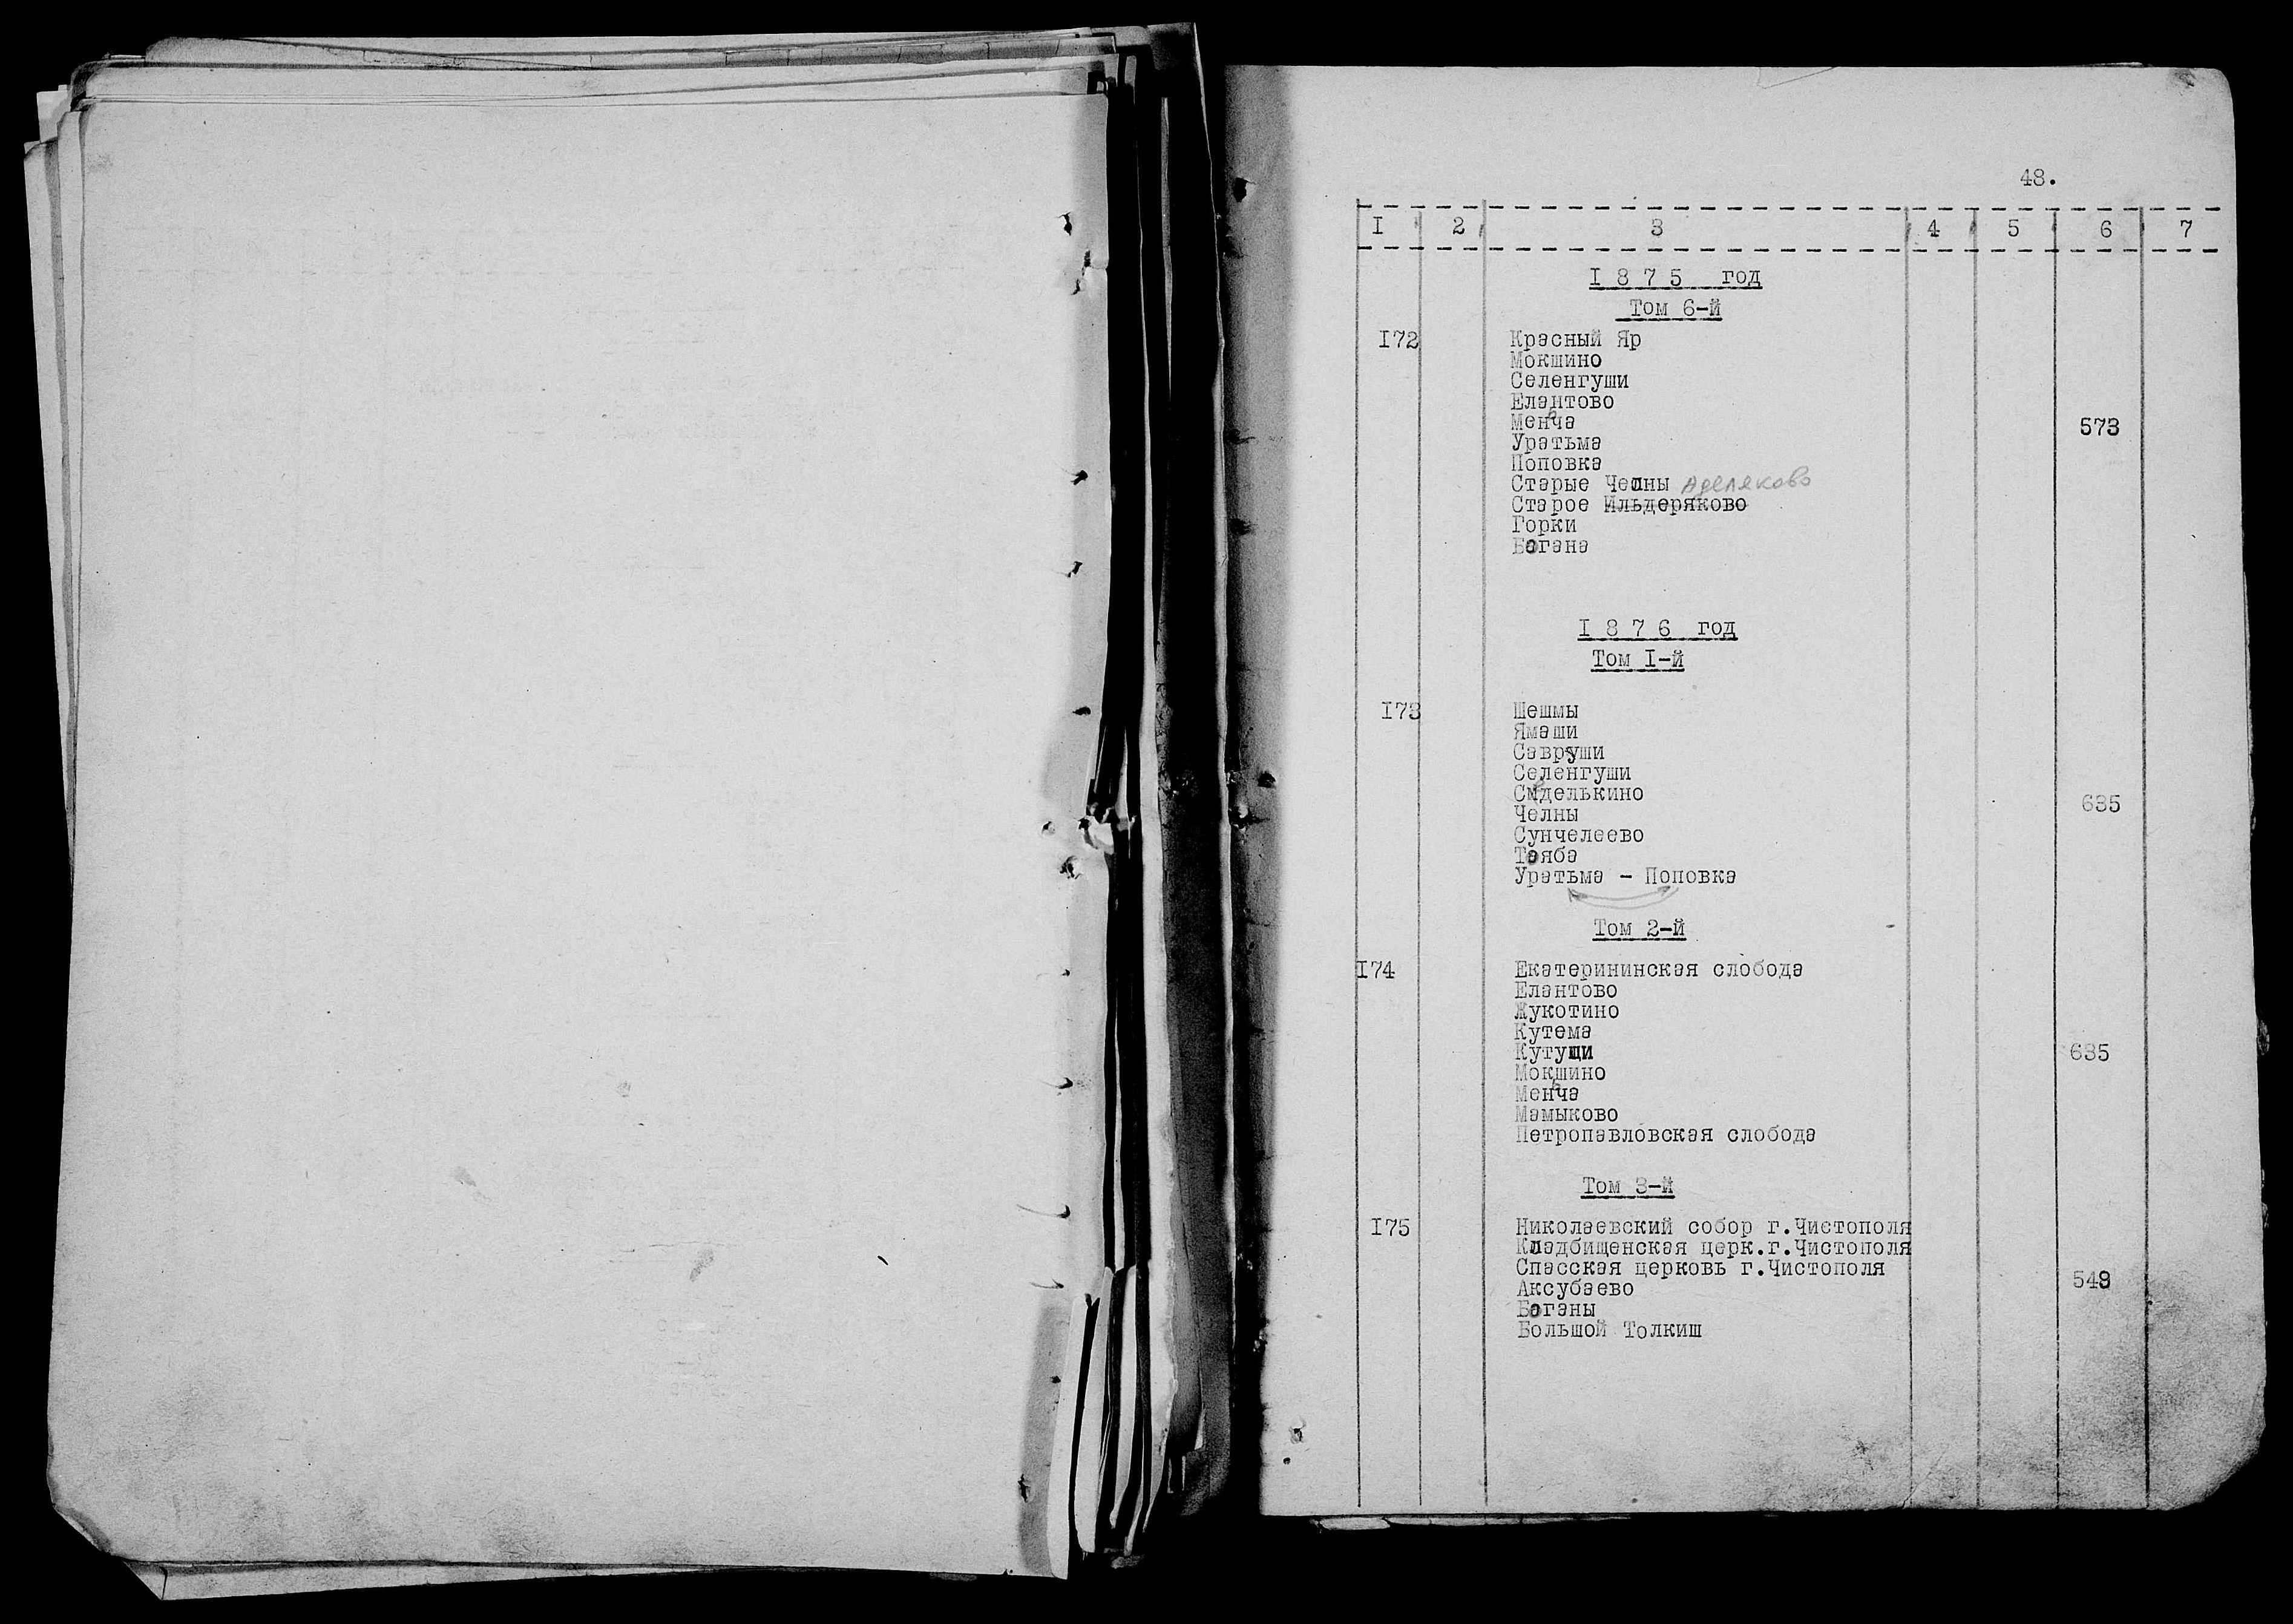 48.
I 2 3 4 5 6 7
I 8 7 5 год
Том 6-й
I72 Красный Яр
Мокшино
Селенгуши
Елантово
Менча 573
Уратьма
Поповка
Старые Челны Аделяково
Старое Ильдеряково
Горки
Багана
I 8 7 6 год
Том I-й
I73 Шешмы
Ямаши
Савруши
Селенгуши
Сиделькино 635
Челны
Сунчелеево
Таяба
Уратьма - Поповка
Том 2-й
I74 Екатерининская слобода
Елантово
Жукотино
Кутема
Кутущи 635
Мокшино
Менча
Мамыково
Петропавловская слобода
Том 3-й
I75 Николаевский собор г.Чистополя
Кладбищенская церк.г.Чистополя
Спасская церковь г.Чистополя
Аксубаево 548
Баганы
Большой Толкиш